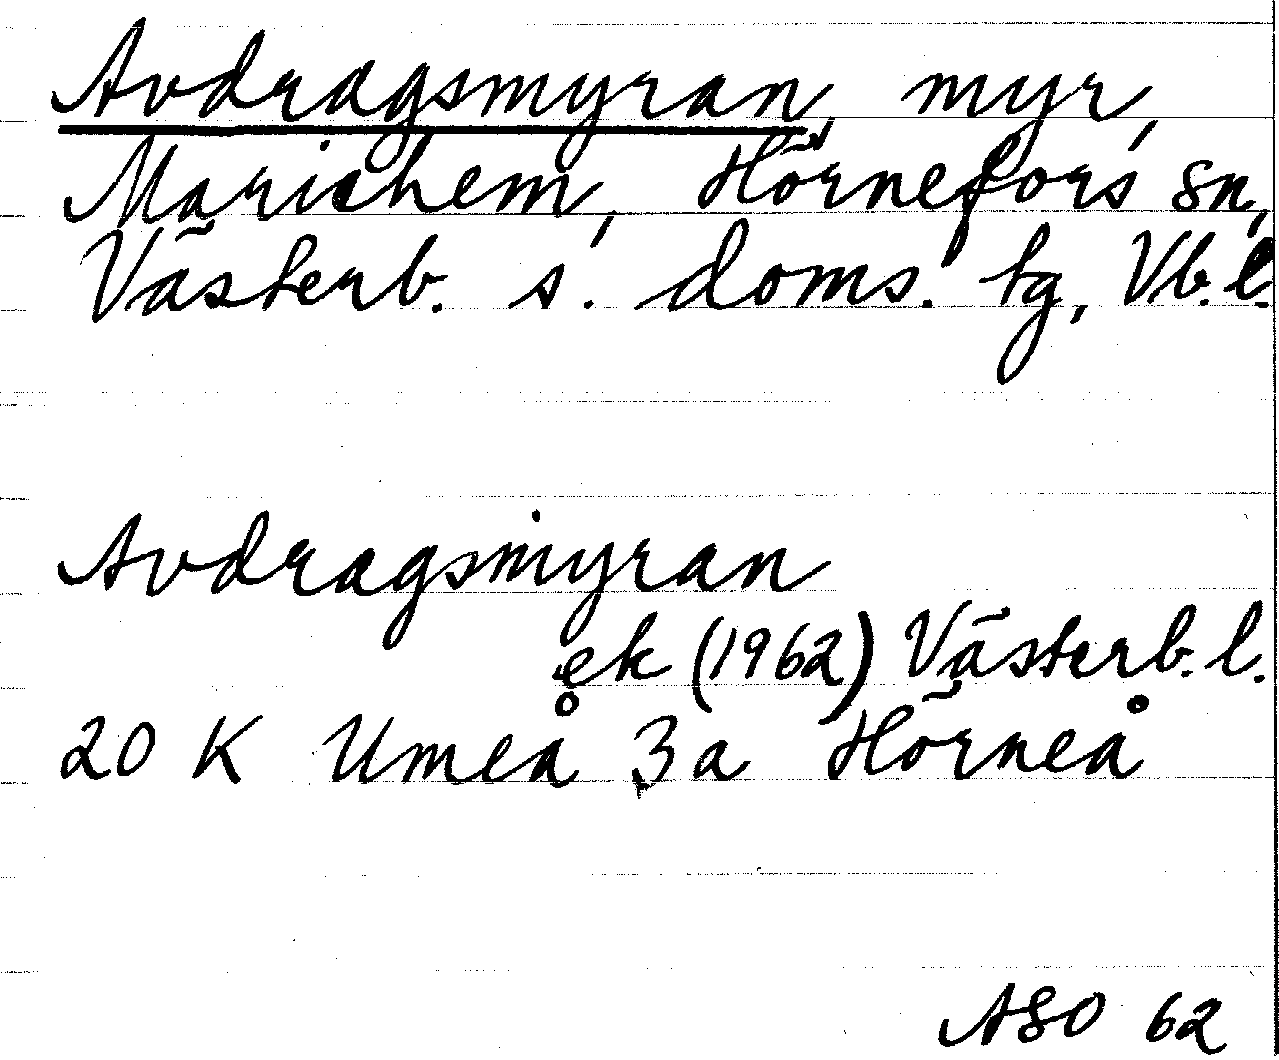 Avdragsmyran, myr,
Mariehem, Hörnefors sn,
Västerb. s. doms. tg, Vb. l.
Avdragsmyran
ek (1962) Västerb. l.
20 K Umeå 3a Hörneå
ASO 62